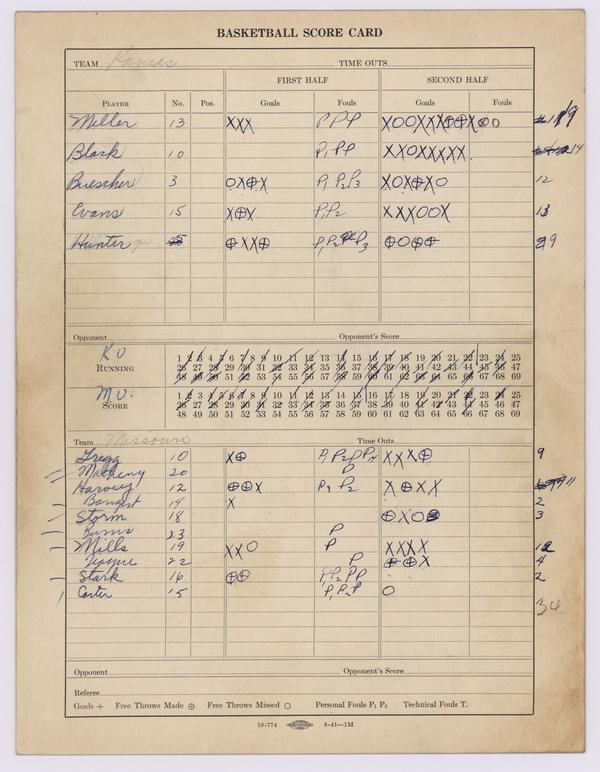 BASKETBALL SCORE CARD
TEAM Kansas TIME OUTS
FIRST HALF SECOND HALF
PLAYER No. Pos. Goals Fouls Goals Fouls
Miller 13 XXX P P P XOOXXX⊕⊕X⊗O 19
Black 10 P1 PP XXOXXXXX 14
Buescher 3 O X ⊕ X P1 P2 P3 XOX⊕XO 12
Evans 15 X⊕X P1 P2 XXXOOX 13
Hunter ⊕XX⊕ P1 P2 P3 ⊕O⊕⊕ 9
Opponent Opponent's Score
KU
RUNNING
1 2 3 4 5 6 7 8 9 10 11 12 13 14 15 16 17 18 19 20 21 22 23 24 25
26 27 28 29 30 31 32 33 34 35 36 37 38 39 40 41 42 43 44 45 46 47
48 49 50 51 52 53 54 55 56 57 58 59 60 61 62 63 64 65 66 67 68 69
MU.
SCORE
1 2 3 4 5 6 7 8 9 10 11 12 13 14 15 16 17 18 19 20 21 22 23 24 25
26 27 28 29 30 31 32 33 34 35 36 37 38 39 40 41 42 43 44 45 46 47
48 49 50 51 52 53 54 55 56 57 58 59 60 61 62 63 64 65 66 67 68 69
Team Missouri Time Outs
10 X⊕ P1 P2 P3 P4 XXX⊕ 9
Matheny 20 P
Harvey 12 ⊕⊕X P1 P2 X⊕XX 11
14 X 2
Storm 18 ⊕XO 3
23 P
Mills 19 XXO P XXXX 12
22 P ⊕⊕X 4
Stark 16 ⊕⊕ P1 P2 PP 2
Carter 15 P1 P2 P O
34
Opponent Opponent's Score
Referee
Goals + Free Throws Made ⊕ Free Throws Missed O Personal Fouls P1 P2 Technical Fouls T.
19-774 8-41—1M